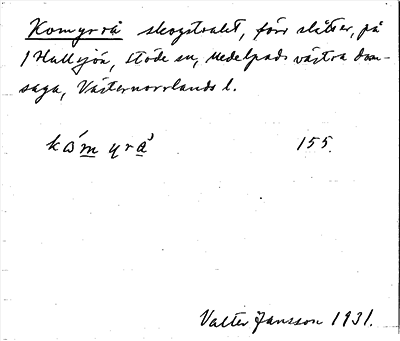 Komyrrå skogstrakt, förr slåtter, på
1 Hullsjön, Stöde sn, Medelpads västra dom-
saga, Västernorrlands l.
kòmyrå̀ 155.
Valter Jansson 1931.